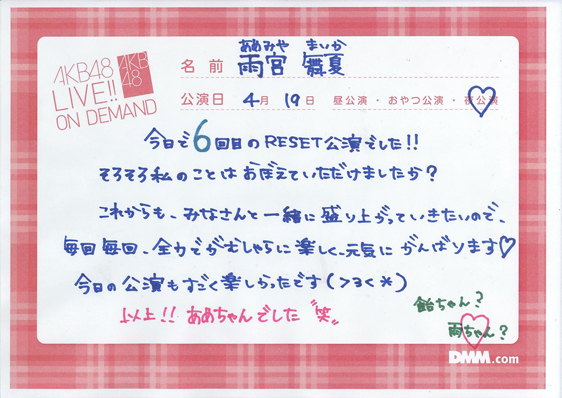 AKB48
LIVE!!
ON DEMAND
AKB
48
あめみや まいか
名前 雨宮 舞夏
公演日 4月 19日 昼公演・おやつ公演・夜公演
今日で6回目のRESET公演でした!!
そろそろ私のことはおぼえていただけましたか?
これからも、みなさんと一緒に盛り上がっていきたいので、
毎回毎回、全力でがむしゃらに楽しく、元気にがんばります♡
今日の公演もすごく楽しかったです(>3<*)
以上!! あめちゃんでした 笑
飴ちゃん?
雨ちゃん?
DMM.com